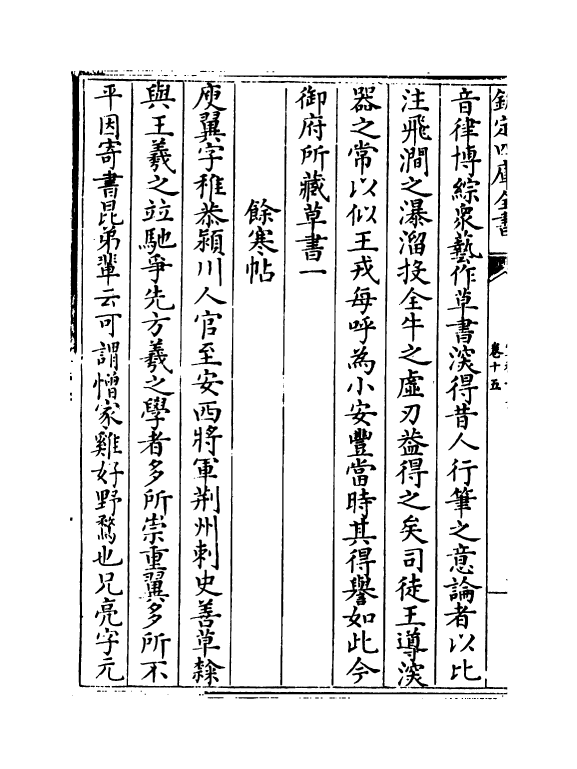 欽定四庫全書
卷十五
音律博綜衆藝作草書深得昔人行筆之意論者以比
注飛澗之瀑溜投全牛之虛刃葢得之矣司徒王導深
器之常以似王戎每呼為小安豐當時其得譽如此今
御府所藏草書一
餘寒帖
庾翼字稚恭潁川人官至安西將軍荆州刺史善草隸
與王羲之竝馳爭先方羲之學者多所崇重翼多所不
平因寄書昆弟輩云可謂憎家雞好野鶩也兄亮字元